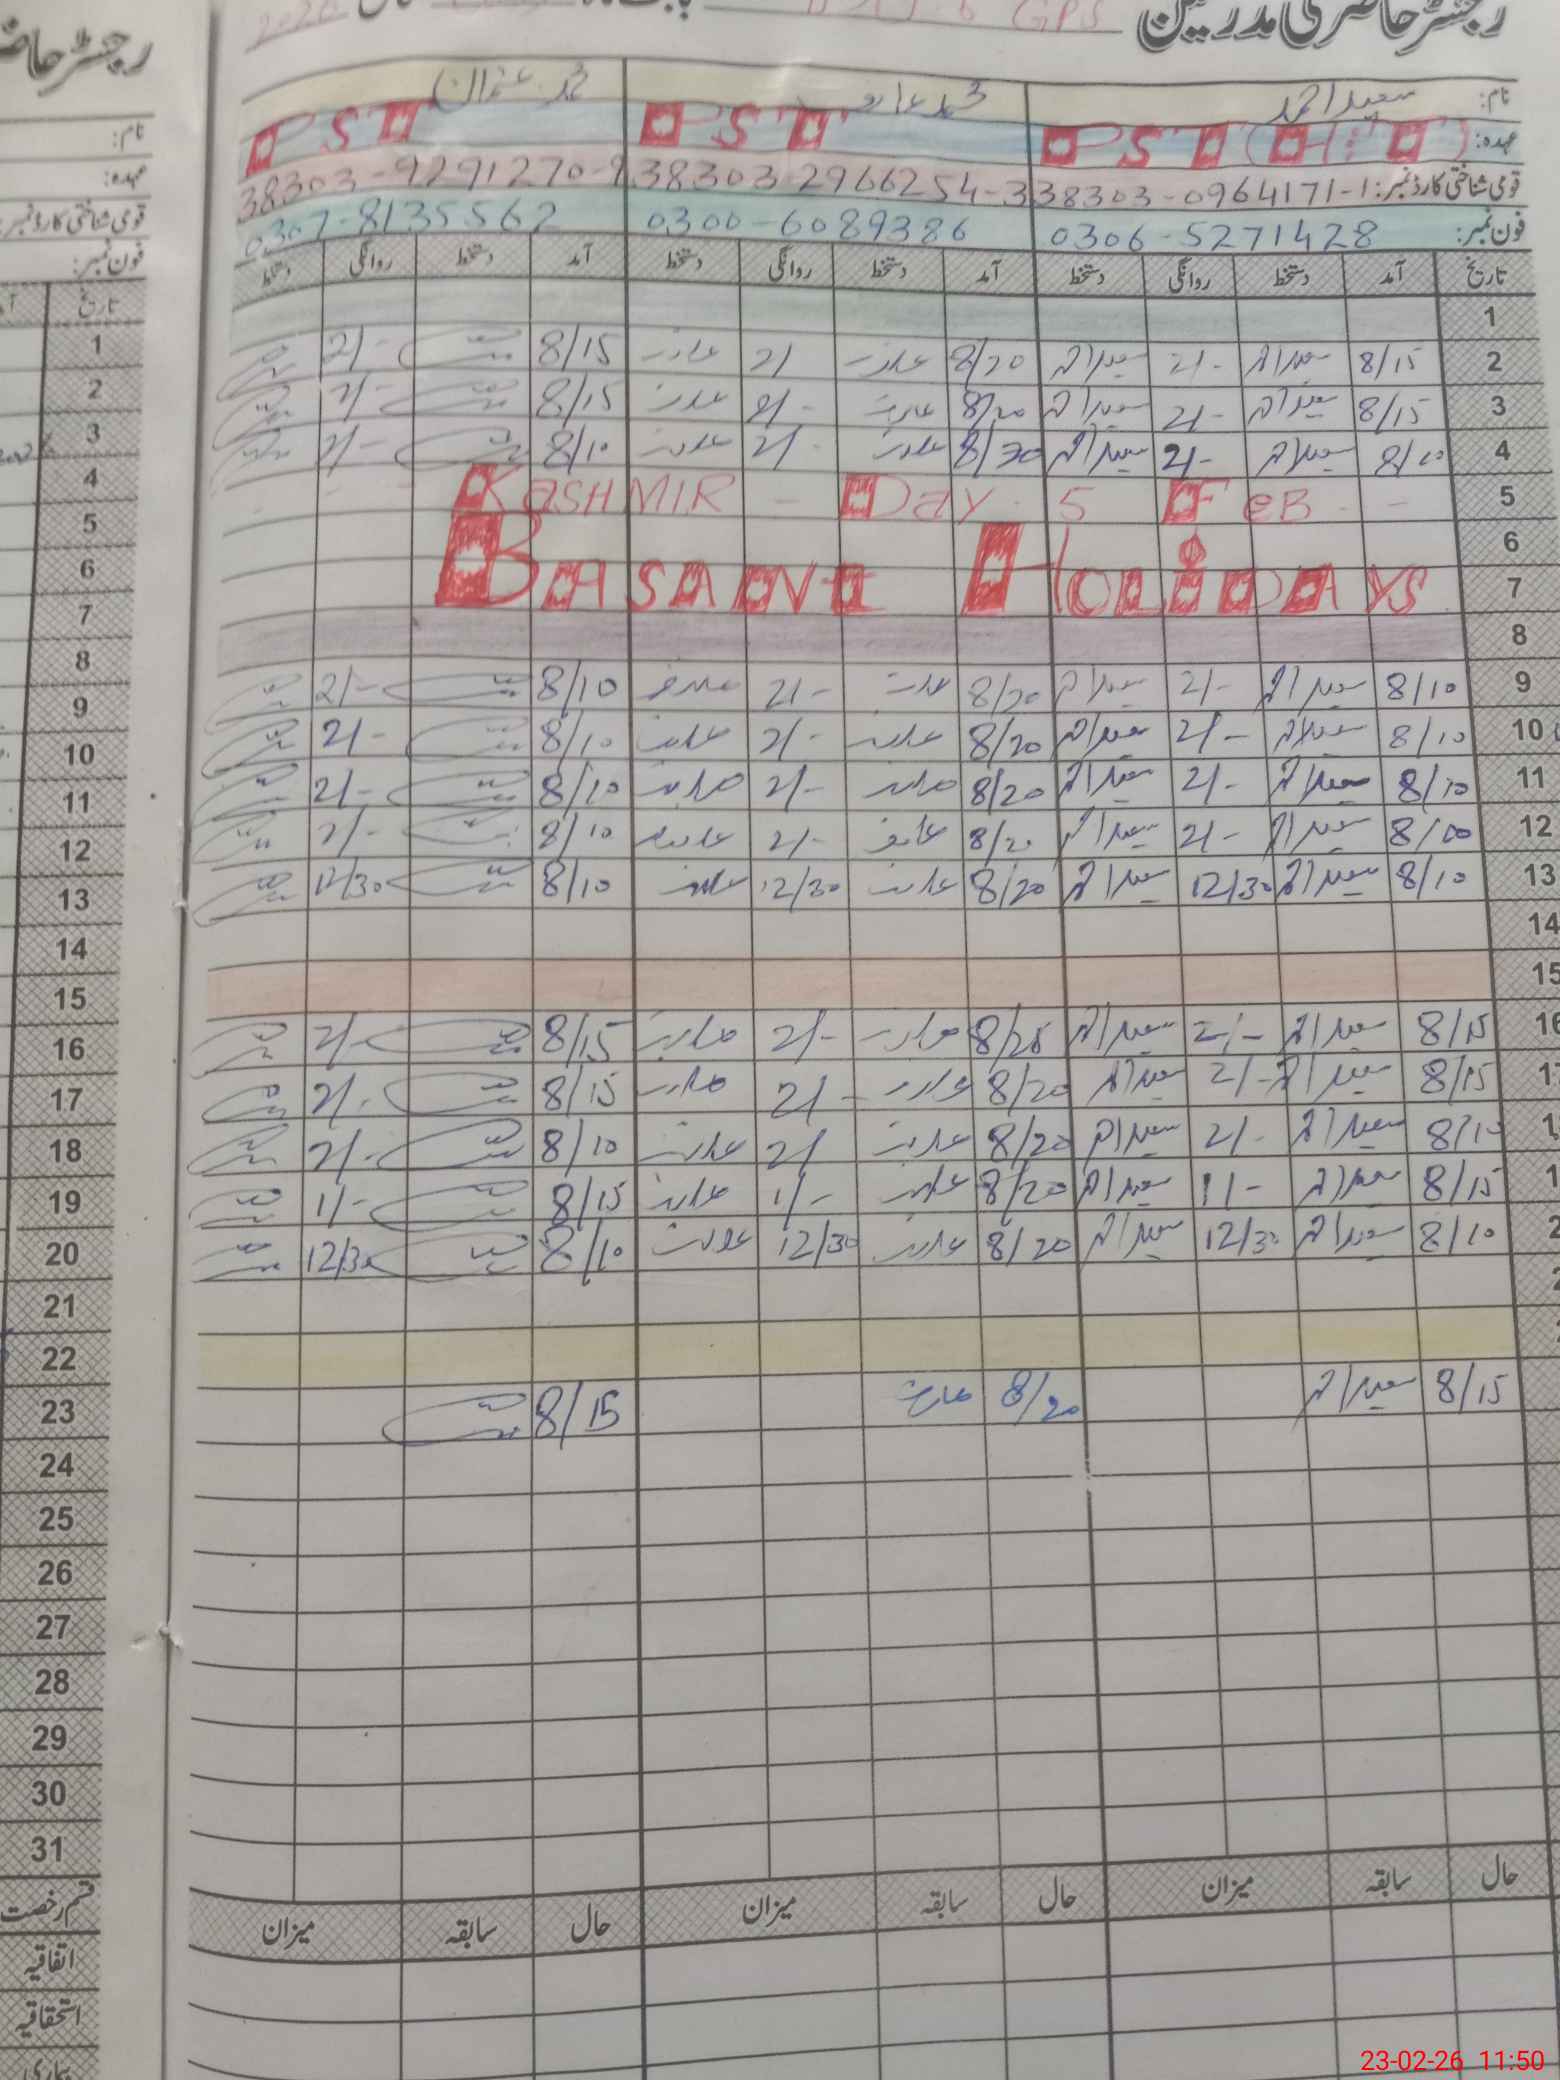 رجسٹر حاضری مدرسین GPS بابت ماہ
نام: سعید احمد محمد عارف محمد عثمان
عہدہ: PST (H.T) PST PST
قومی شناختی کارڈ نمبر: 38303-0964171-1 38303-2966254-3 38303-9291270-9
فون نمبر: 0306-5271428 0300-6089386 0307-8135562
تاریخ آمد دستخط روانگی دستخط آمد دستخط روانگی دستخط آمد دستخط روانگی دستخط
1
2 8/15 سعید احمد 2/- سعید احمد 8/20 عارف 2/ عارف 8/15 2/-
3 8/15 سعید احمد 2/- سعید احمد 8/20 عارف 2/- عارف 8/15 2/-
4 8/10 سعید احمد 2/- سعید احمد 8/20 عارف 2/- عارف 8/10 2/-
5 KASHMIR - Day - 5 FeB - -
6
7 BASANT HOLIDAYS
8
9 8/10 سعید احمد 2/- سعید احمد 8/20 عارف 2/- عارف 8/10 2/-
10 8/10 سعید احمد 2/- سعید احمد 8/20 عارف 2/- عارف 8/10 2/-
11 8/10 سعید احمد 2/- سعید احمد 8/20 عارف 2/- عارف 8/10 2/-
12 سعید احمد 2/- سعید احمد 8/20 عارف 2/- عارف 8/10 2/-
13 8/10 سعید احمد 12/30 سعید احمد 8/20 عارف 12/30 عارف 8/10 12/30
14
15
16 8/15 سعید احمد 2/- سعید احمد عارف 2/- عارف 8/15 2/-
17 8/15 سعید احمد 2/- سعید احمد 8/20 عارف 2/- عارف 8/15 2/-
18 8/10 سعید احمد 2/- سعید احمد 8/20 عارف 2/ عارف 8/10 2/-
19 8/15 سعید احمد 1/- سعید احمد 8/20 عارف 1/- عارف 8/15 1/-
20 8/10 سعید احمد 12/30 سعید احمد 8/20 عارف 12/30 عارف 8/10 12/30
21
22
23 8/15 سعید احمد 8/20 عارف 8/15
24
25
26
27
28
29
30
31
حال سابقہ میزان حال سابقہ میزان حال سابقہ میزان
قسم رخصت
اتفاقیہ
استحقاقیہ
بیماری
23-02-26 11:50